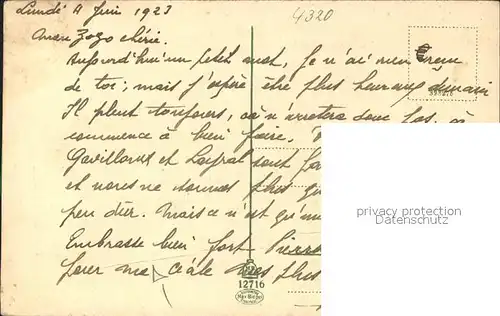 Lundi 4 Juin 1923
4320
Mon Zozo chéri.
Aujourd'hui un petit mot, Je n'ai rien
de toi; mais j'espère être plus heureux demain
Il pleut toujours, ça n'arrêtera donc pas, ça
commence à bien faire.
et Lafral sont
et nous ne sommes plus
peu dur. Mais ce n'est qu'un
Embrasse bien fort Pierre
pour moi mes plus
privacy protection
Datenschutz
12716